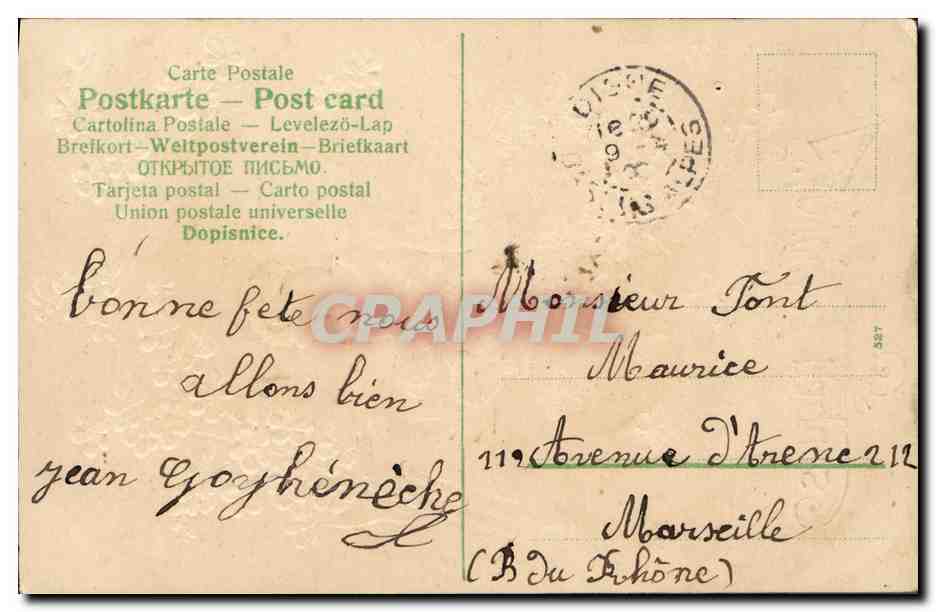 Carte Postale
Postkarte — Post card
Cartolina Postale — Levelező-Lap
Brefkort—Weltpostverein—Briefkaart
ОТКРЫТОЕ ПИСЬМО.
Tarjeta postal — Carto postal
Union postale universelle
Dopisnice.
bonne fête nous
allons bien
Jean Goyhénèche
DIGNE
ALPES
Monsieur Font
Maurice
112 Avenue d'Arenc 212
Marseille
(B du Rhône)
527
CPAPHIL